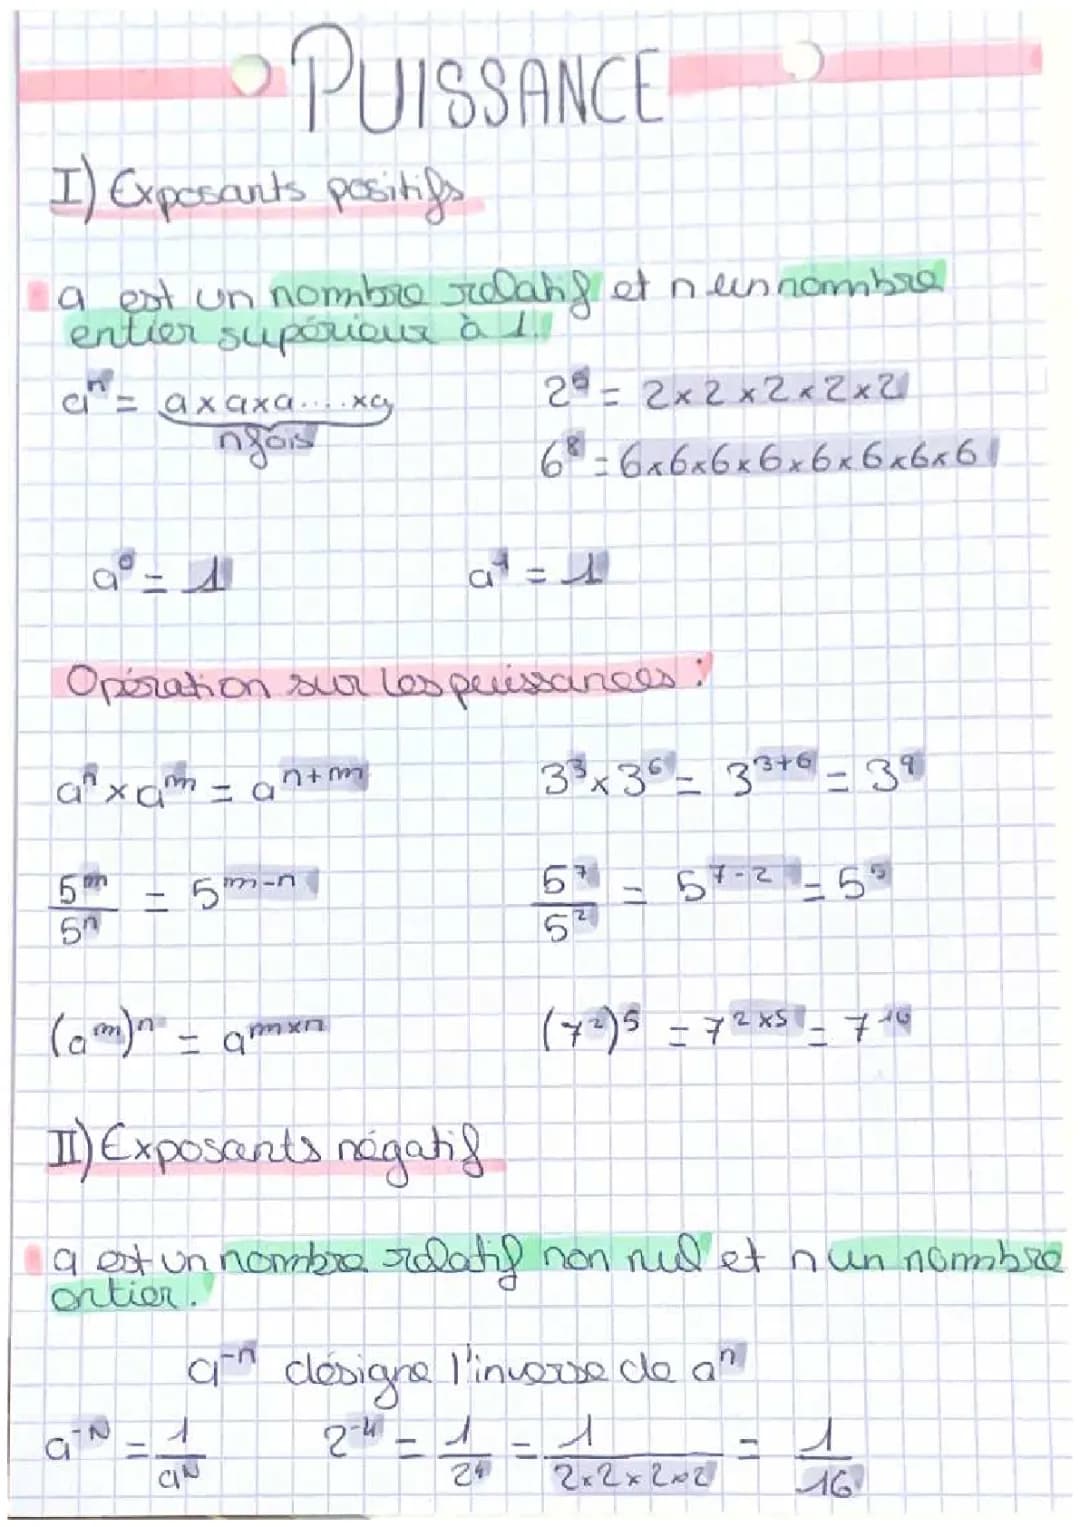 PUISSANCE
I) Exposants positifs
a est un nombre relatif et n un nombre
entier supérieur à 1.
aⁿ = a×a×a....×a
n fois
2⁵ = 2×2×2×2×2
6⁸ = 6×6×6×6×6×6×6×6
a⁰ = 1 a¹ = 1
Opération sur les puissances :
aⁿ × aᵐ = aⁿ⁺ᵐ 3³×3⁶ = 3³⁺⁶ = 3⁹
5ᵐ/5ⁿ = 5ᵐ⁻ⁿ 5⁷/5² = 5⁷⁻² = 5⁵
(aᵐ)ⁿ = aᵐˣⁿ (7²)⁵ = 7²ˣ⁵ = 7¹⁰
II) Exposants négatif
a est un nombre relatif non nul et n un nombre
entier.
a⁻ⁿ désigne l'inverse de aⁿ
a⁻ᴺ = 1/aᴺ 2⁻⁴ = 1/2⁴ = 1/2×2×2×2 = 1/16